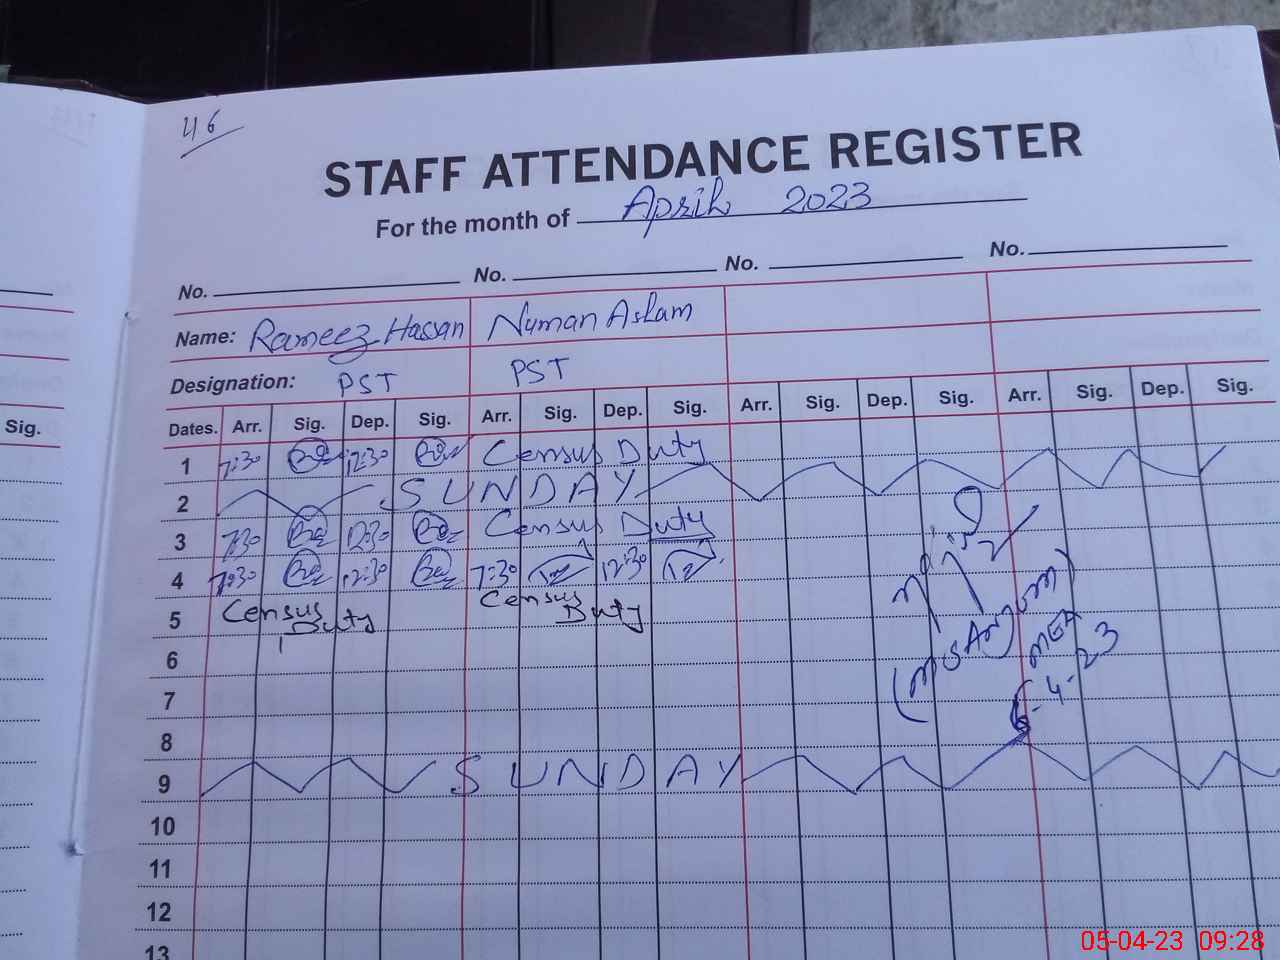 46
STAFF ATTENDANCE REGISTER
For the month of April 2023
No. No. No. No.
Name: Rameez Hassan Numan Aslam
Designation: PST PST
Sig. Dates. Arr. Sig. Dep. Sig. Arr. Sig. Dep. Sig. Arr. Sig. Dep. Sig. Arr. Sig. Dep. Sig.
1 7:30 12:30 Census Duty
2 SUNDAY
3 7:30 12:30 Census Duty
4 7:30 12:30 7:30 12:30
5 Census Duty Census Duty
6
7
8
9 SUNDAY
10
11
12
13
MEA
5-4-23
05-04-23 09:28